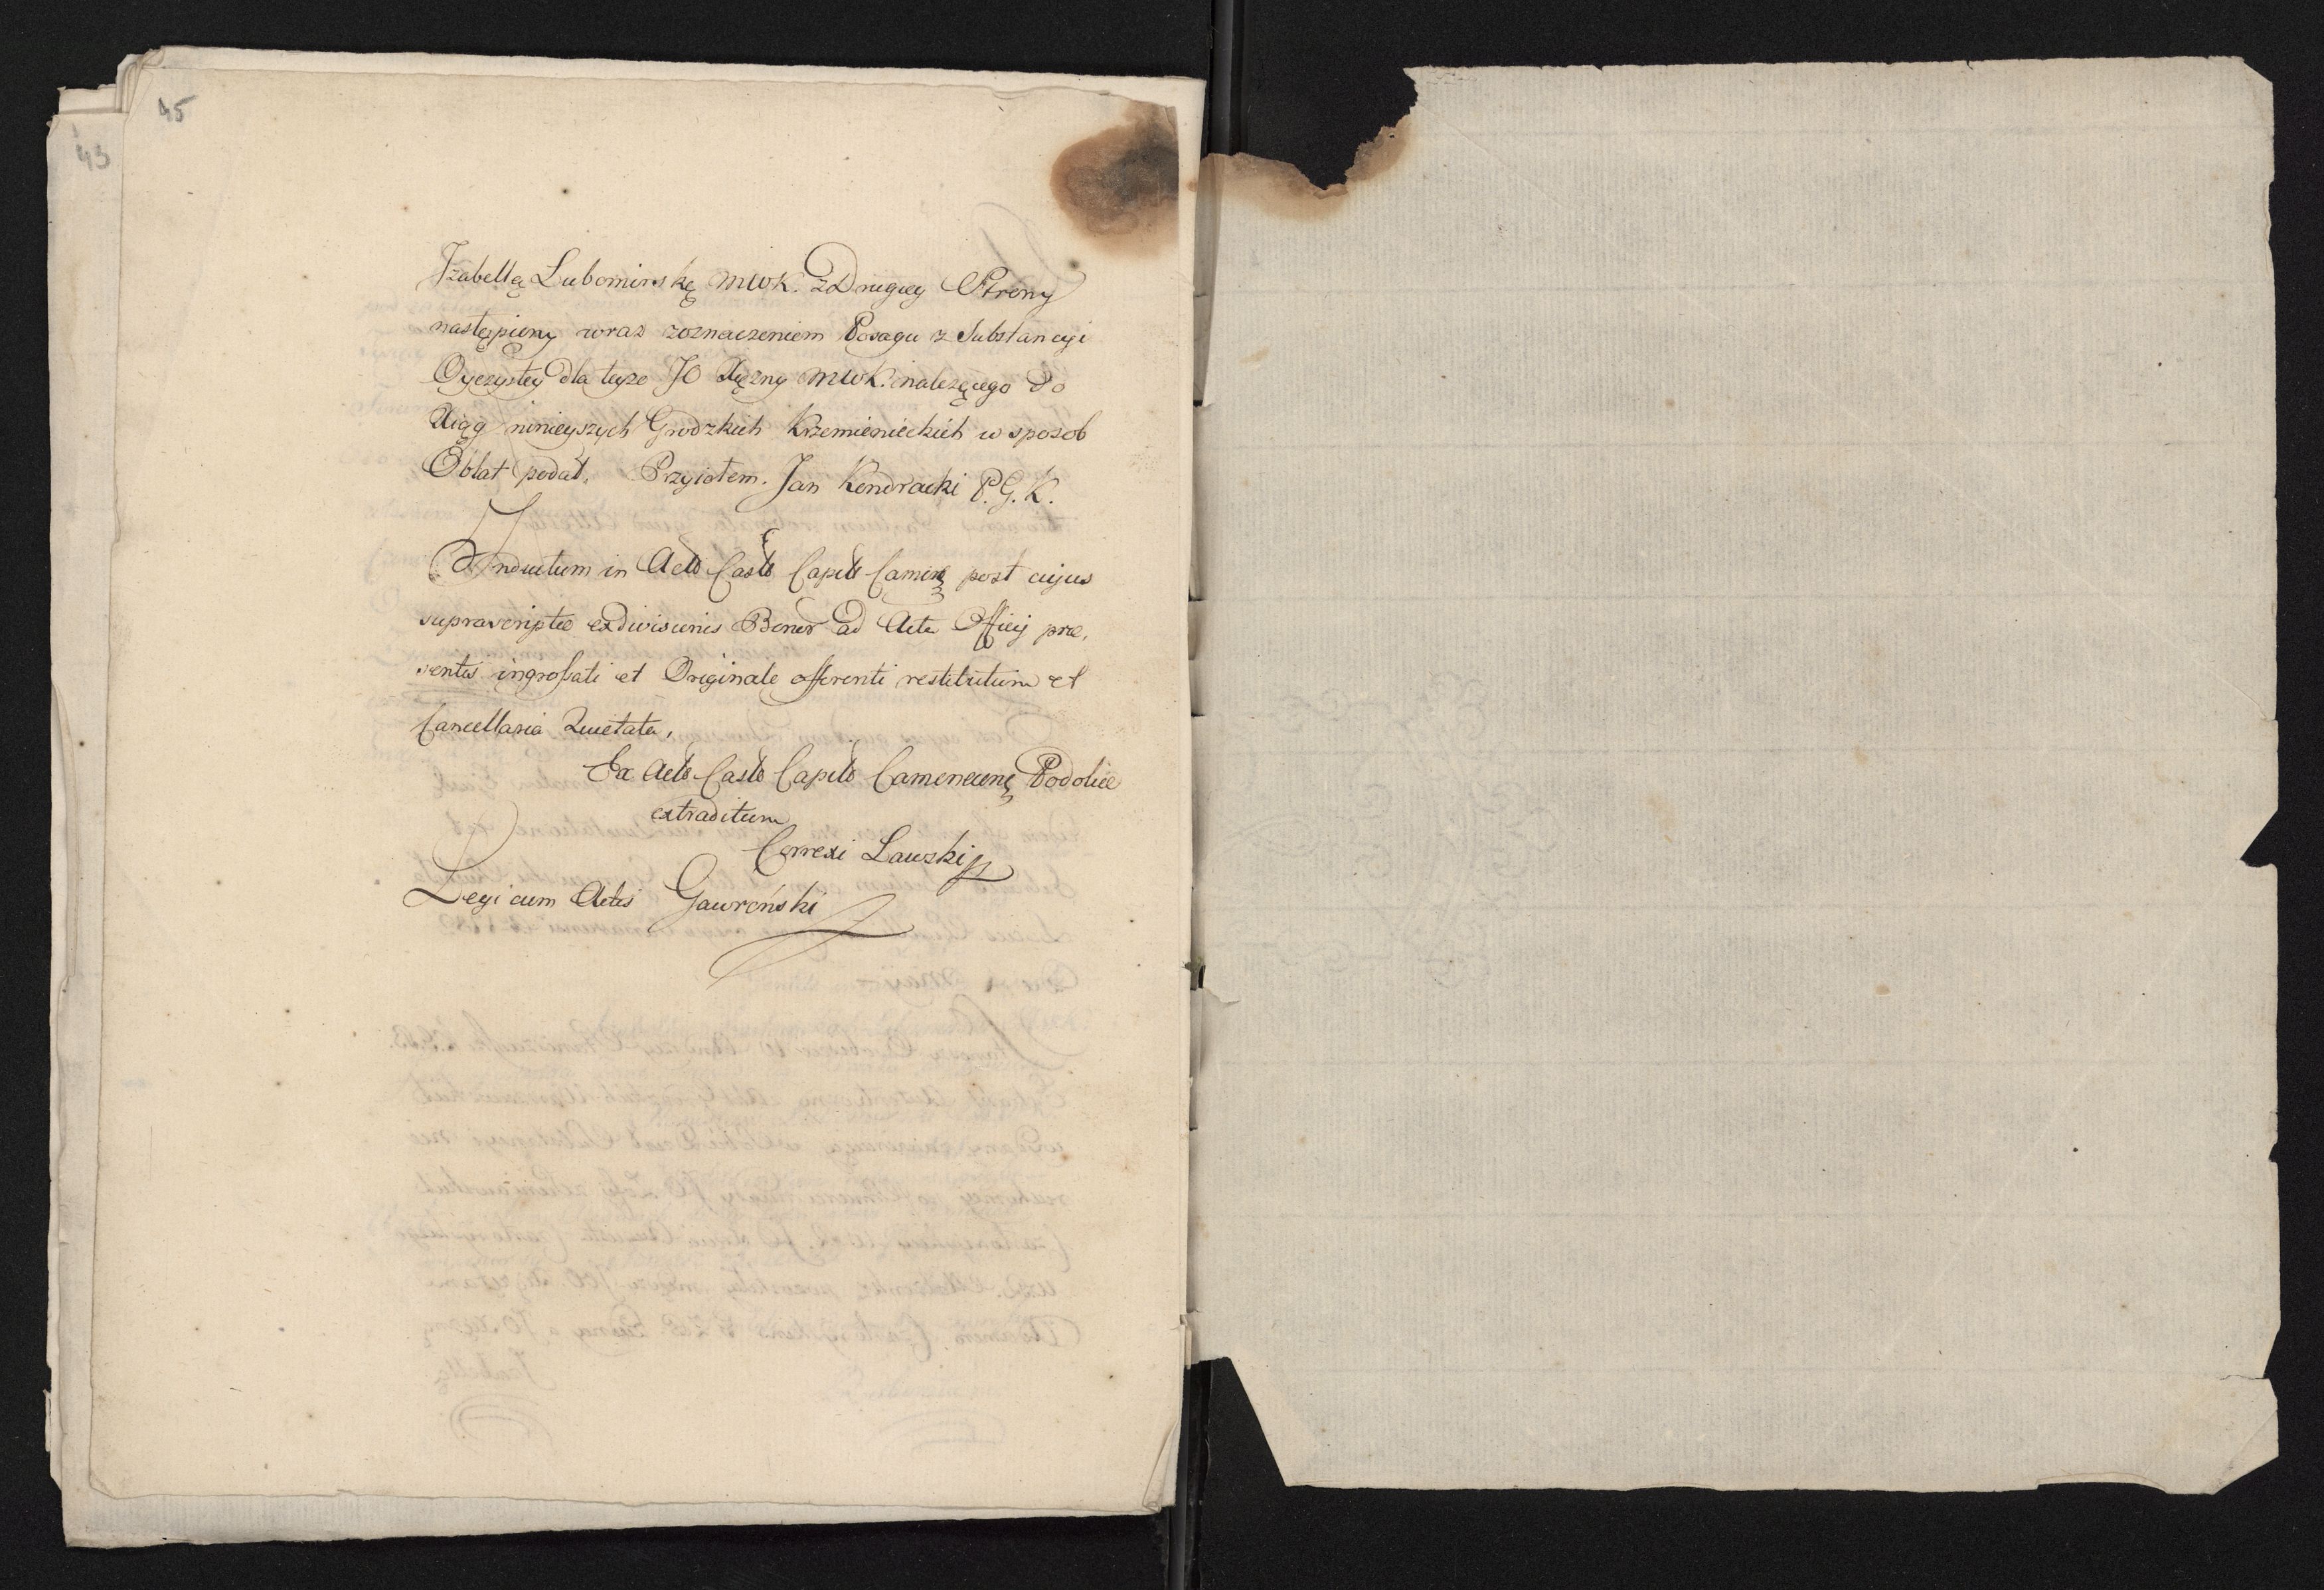 45
43
Izabellą Lubomirską MWK. z Drugiey Strony
nastąpiony wraz zoznaczeniem Posagu z Substancyi
Oyczystey dla teyże JO Xiężny MWK. należącego do
Xiąg ninieyszych Grodzkich Krzemienieckich w sposob
Oblat podał. Przyiołem. Jan Kendracki P.G.K.
Inductum in Acta Castr Capit Camen post cujus
suprascriptae exdivisionis Bonor ad Acta Officij prae,
sentis ingrossati et Originale offerenti restitutum et
Cancellaria Quietata,
Ex Actis Castr Capit Camenecen Podoliae
extraditum
Correxi Lawski
Legi cum Actis Gawroński